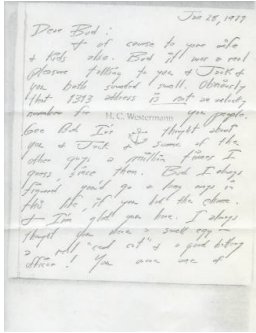 Jan 25, 1979
Dear Bud :
& of course to your wife
& kids also. Bud it was a real
pleasure talking to you & Jack &
you both sounded swell. Obviously
that 1393 address is not an unlucky
number for you people.
H. C. Westermann
Gee Bud I've thought about
you & Jack & some of the
other guys a million times I
guess, since then. Bud I always
figured you'd go a long ways in
this life, if you had the chance.
& I'm glad you have. I always
thought you were a swell egg —
a real "cool cat" & a good
officer! You were one of